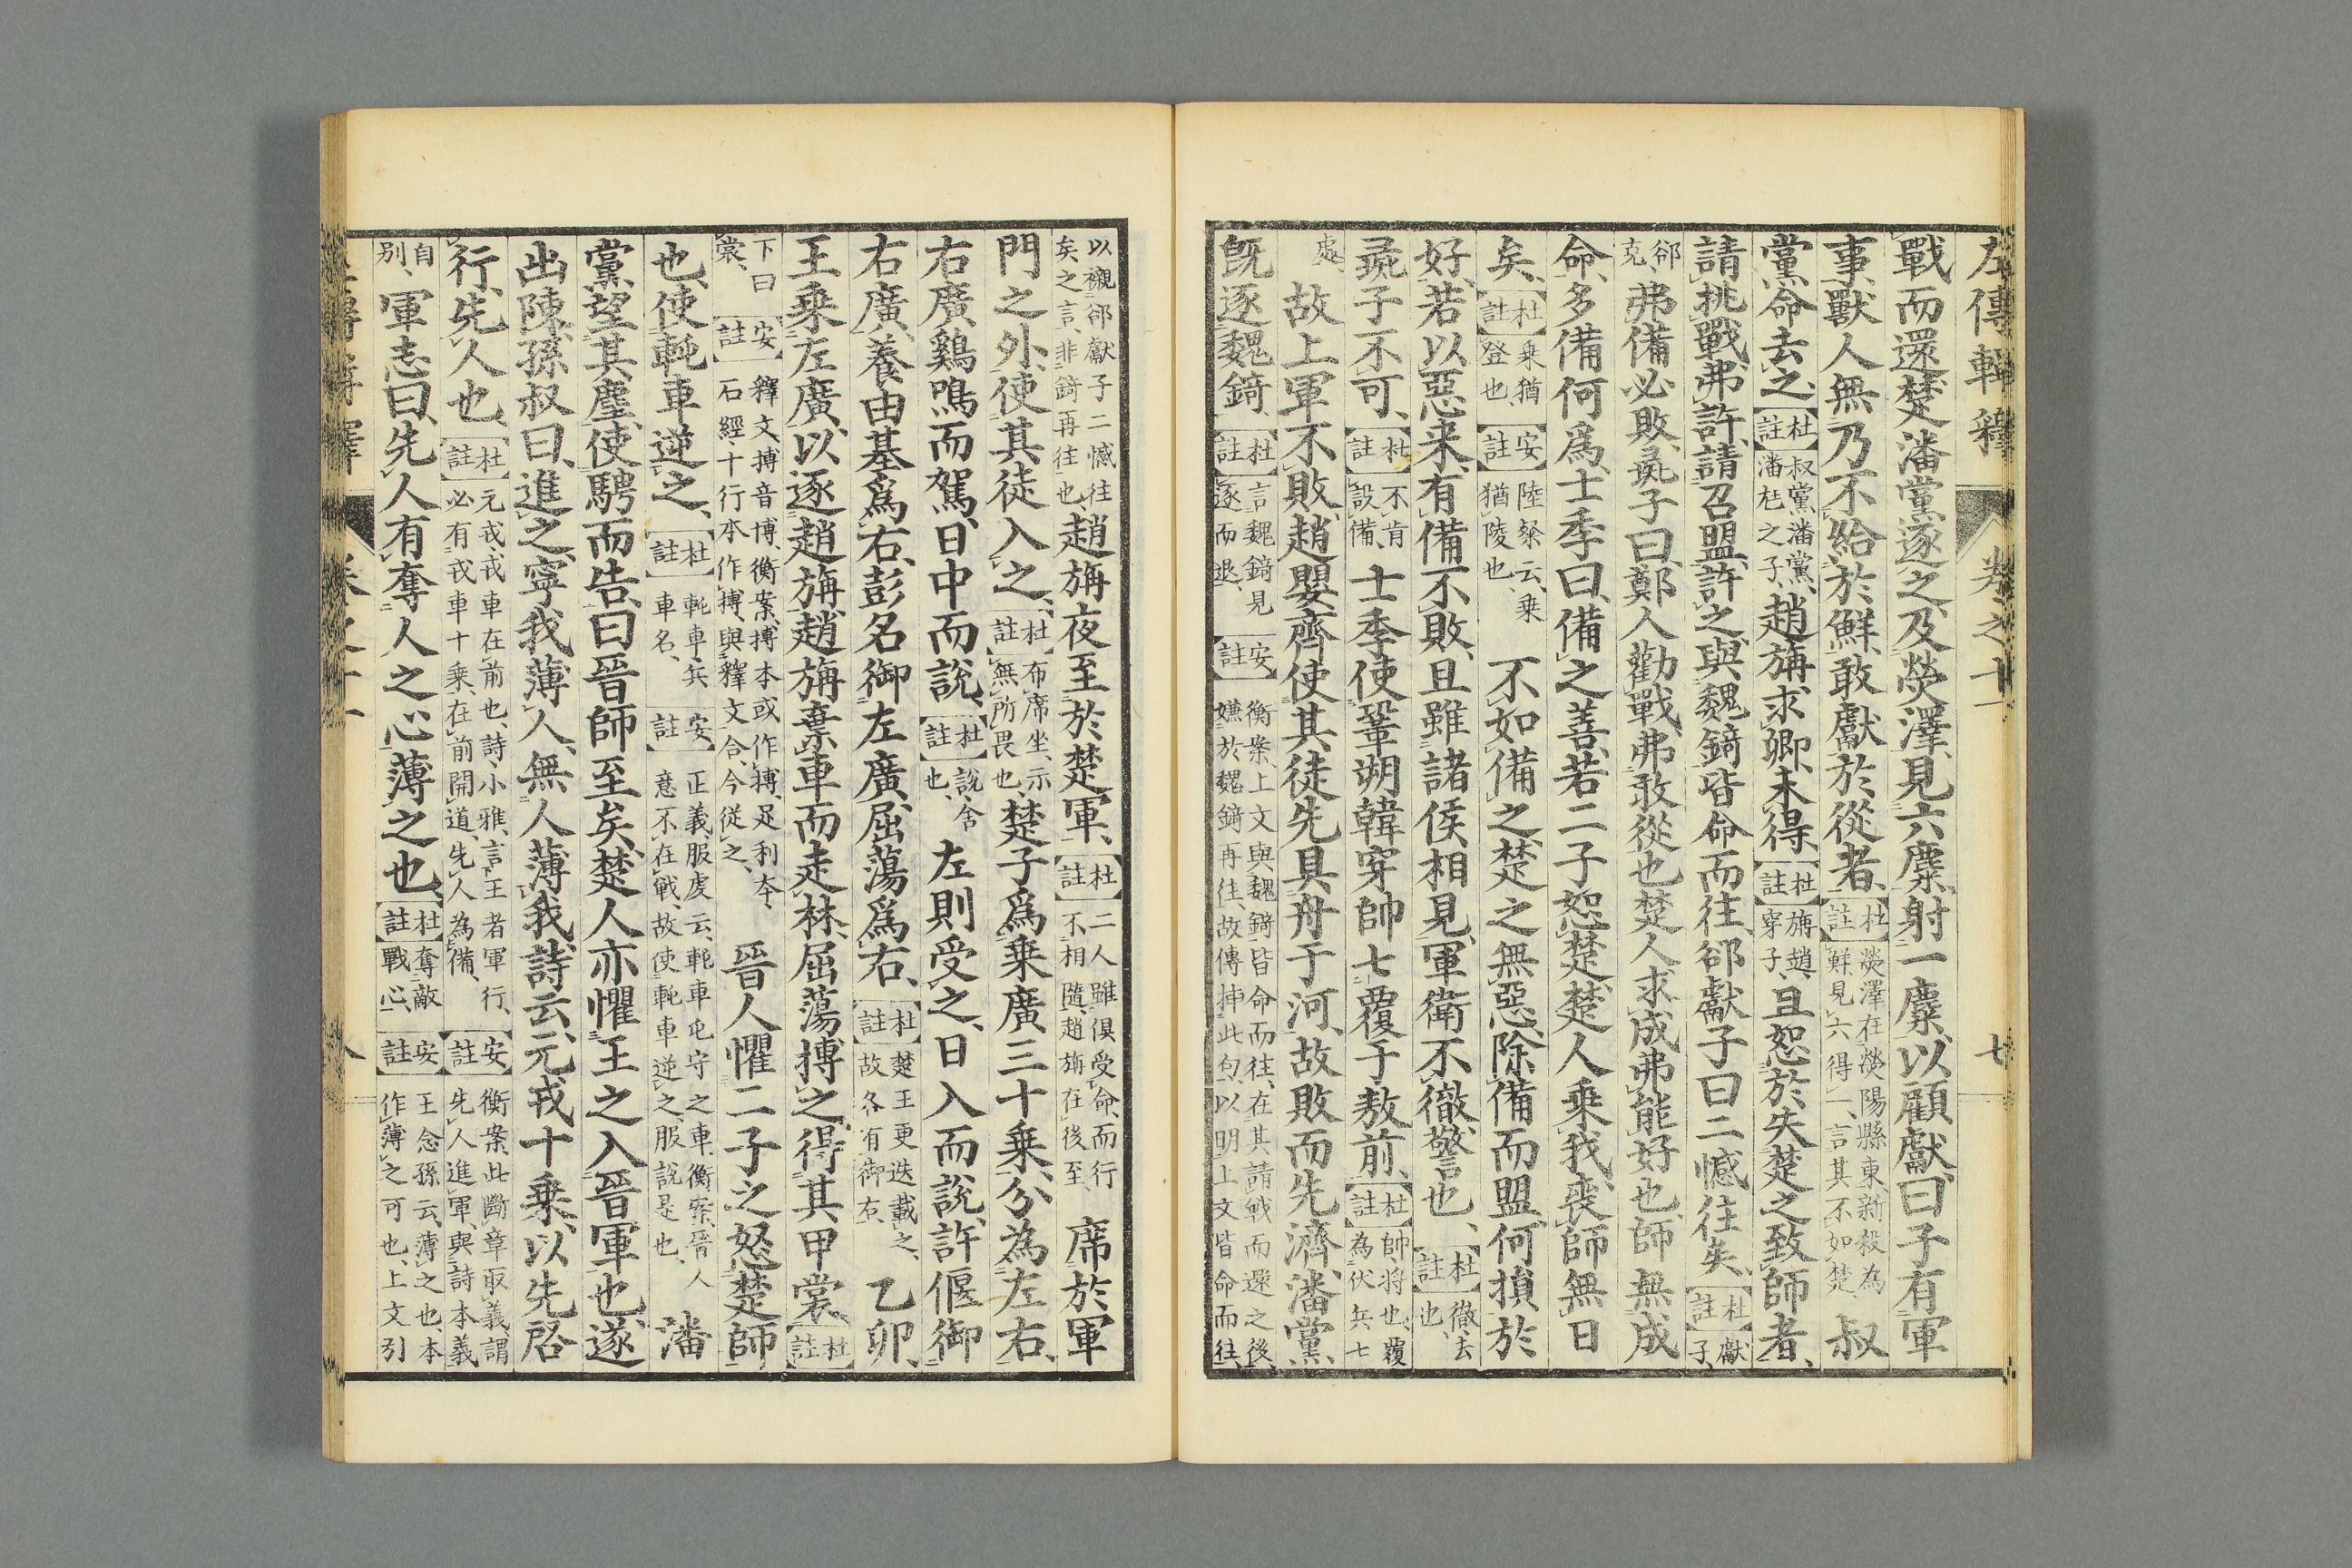 左傳輯釋 卷之十一 七
戰而還、楚潘黨逐之、及熒澤、見六麋、射一麋、以顧獻、曰、子有軍
事、獸人無乃不給於鮮、敢獻於從者、杜註 滎澤在滎陽縣東、新殺為鮮、見六得一、言其不如楚、 叔
黨命去之、杜註 叔黨、潘黨、潘尫之子、 趙旃求卿未得、杜註 旃、趙穿子、 且怒於失楚之致師者、
請挑戰、弗許、請召盟、許之、與魏錡皆命而往、郤獻子曰、二憾往矣、杜註 獻子、
郤克、 弗備必敗、彘子曰、鄭人勸戰、弗敢從也、楚人求成、弗能好也、師無成
命、多備何為、士季曰、備之善、若二子怒楚、楚人乘我、喪師無日
矣、杜註 乗猶登也、 安註 陸粲云、乗猶陵也、 不如備之、楚之無惡、除備而盟、何損於
好、若以惡来、有備不敗、且雖諸侯相見、軍衛不徹、警也、杜註 徹、去也、
彘子不可、杜註 不肯設備、 士季使鞏朔韓穿帥七覆于敖前、杜註 帥、将也、覆為伏兵七
處、 故上軍不敗、趙嬰齊使其徒先具舟于河、故敗而先濟、潘黨
旣逐魏錡、杜註 言魏錡見逐而退、 安註 衡案、上文與魏錡皆命而往、在其請戦而還之後、嫌於魏錡再往、故傳挿此句、以明上文皆命而往、
以襯郤獻子二憾往矣之言、非錡再往也、 趙旃夜至於楚軍、杜註 二人雖俱受命、而行不相隨、趙旃在後至、 席於軍
門之外、使其徒入之、杜註 布席坐、示無所畏也、 楚子為乗廣三十乗、分為左右、
右廣、雞鳴而駕、日中而說、杜註 說、舍也、 左則受之、日入而說、許偃御
右廣、養由基為右、彭名御左廣、屈蕩為右、杜註 楚王更迭載之、故各有御右、 乙卯、
王乗左廣、以逐趙旃、趙旃棄車而走林、屈蕩搏之、得其甲裳、杜註
下曰裳、 安註 釋文、搏音博、衡案、搏本或作搏、足利本、石經、十行本作搏、與釋文合、今從之、 晉人懼二子之怒楚師
也、使軘車逆之、杜註 軘車、兵車名、 安註 正義、服虔云、軘車屯守之車、衡案、晉人意不在戦、故使軘車逆之、服說是也、 潘
黨望其塵、使騁而告、曰、晉師至矣、楚人亦懼王之入晉軍也、遂
出陳、孫叔曰、進之、寧我薄人、無人薄我、詩云、元戎十乗、以先啓
行、先人也、杜註 元戎、戎車在前也、詩小雅、言王者軍行、必有戎車十乗、在前開道、先人為備、 安註 衡案、此斷章取義、謂先人進軍、與詩本義
自別、 軍志曰、先人有奪人之心、薄之也、杜註 奪敵戰心、 安註 王念孫云、薄之也、本作薄之可也、上文引
卷之十一 八